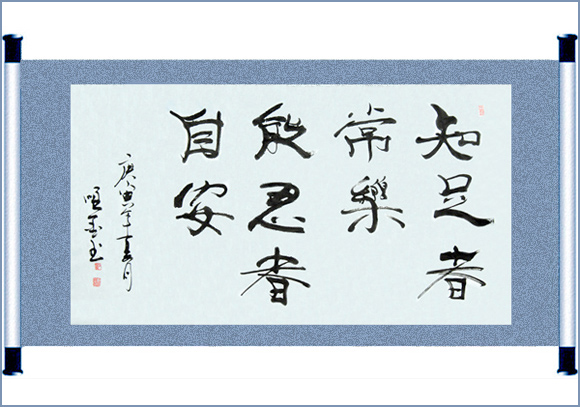 知足者
常樂
能忍者
自安
庚寅年月